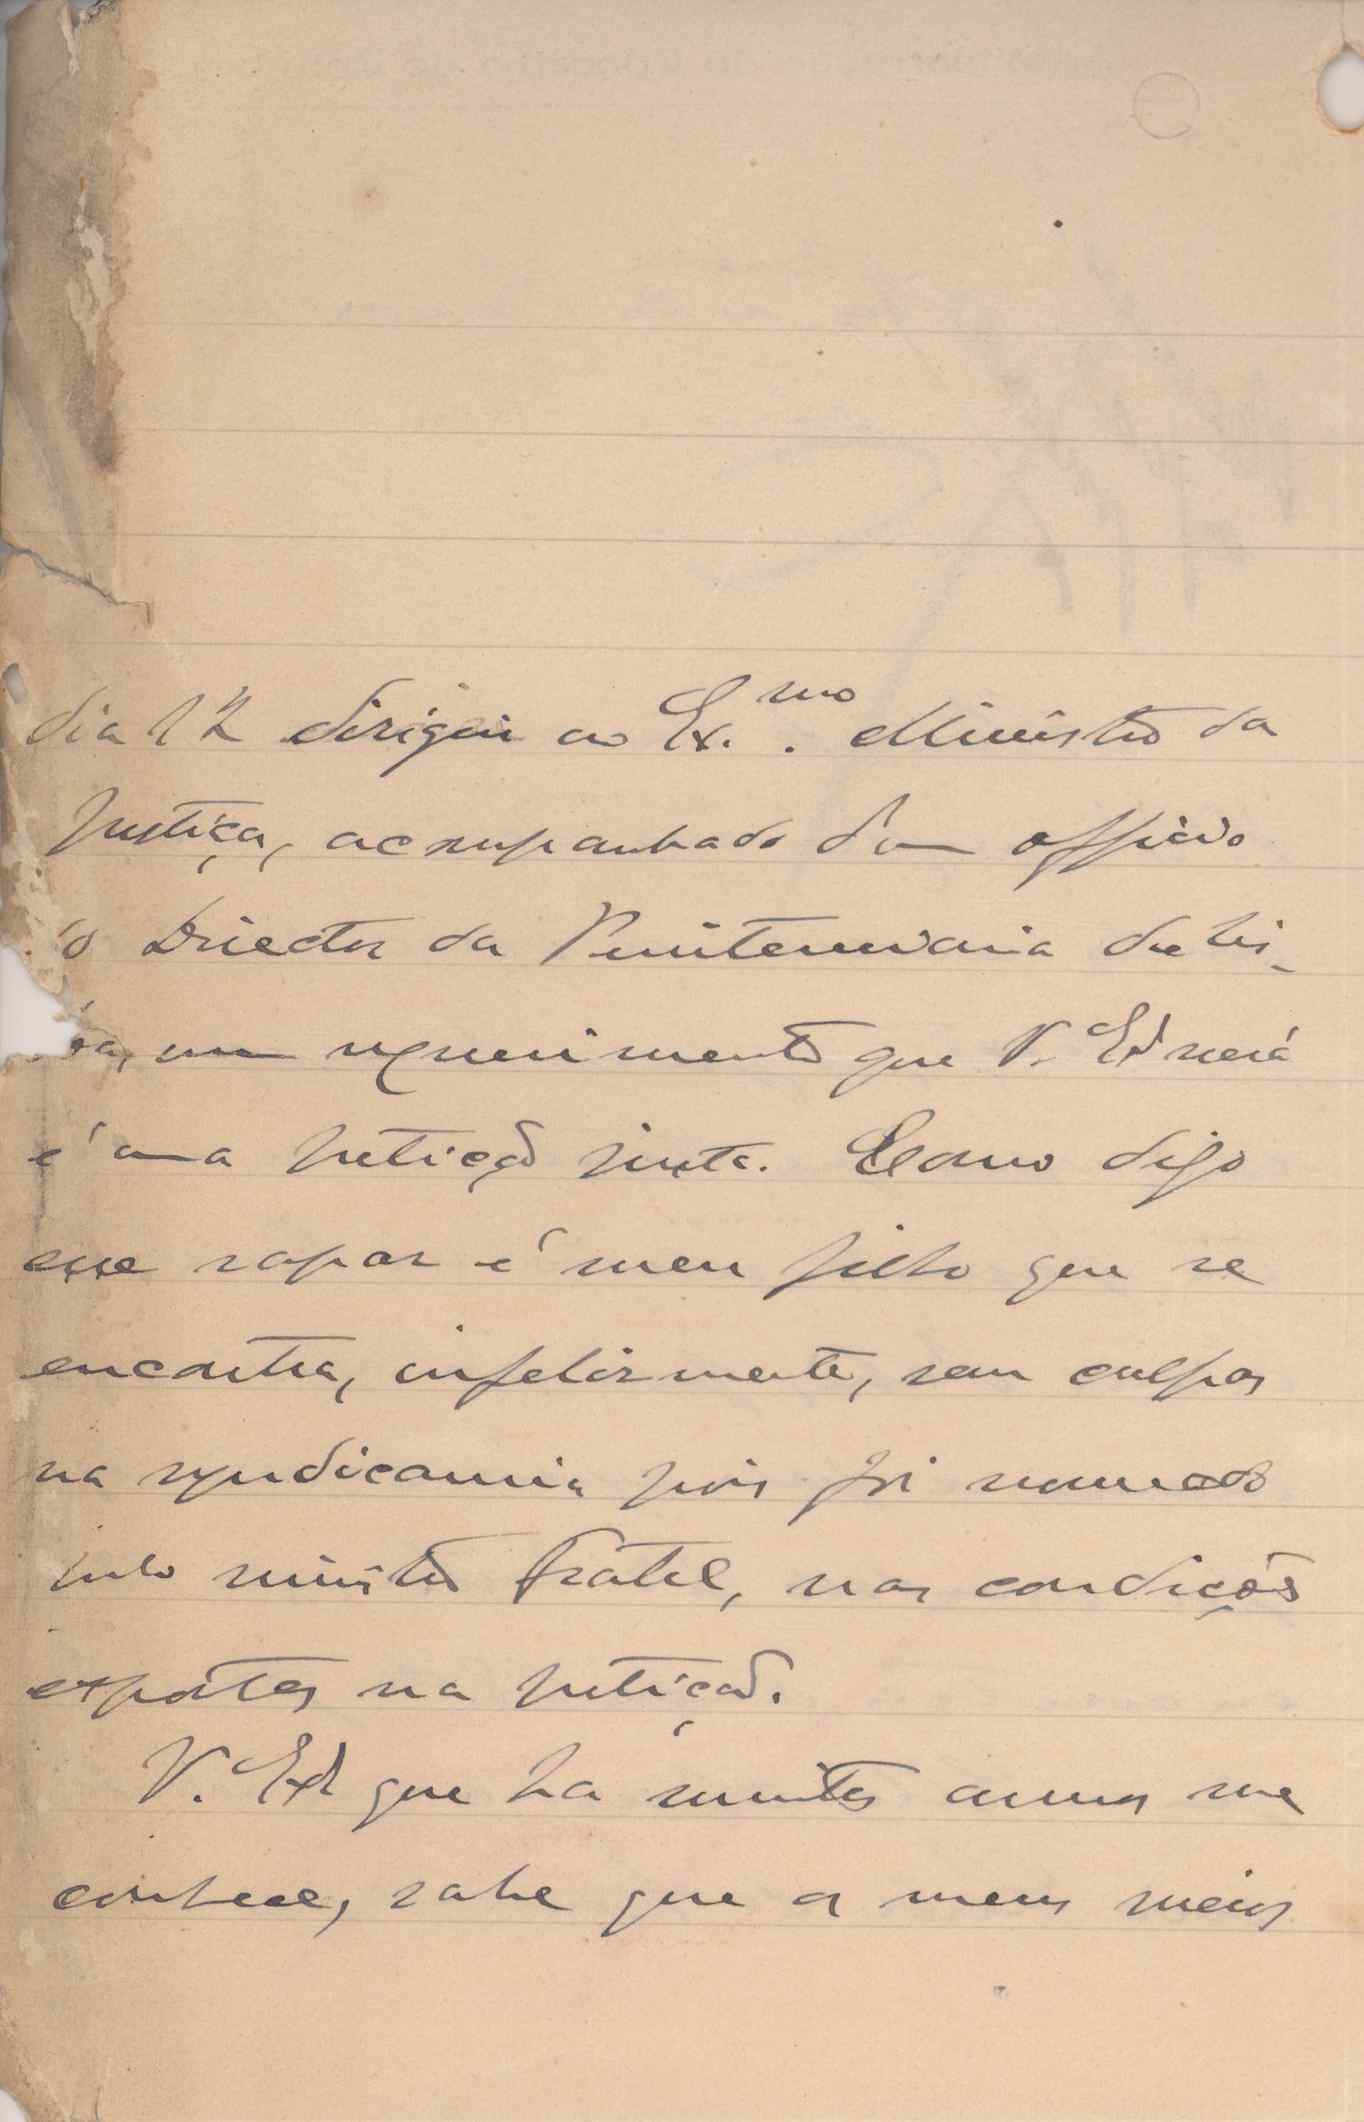 dia 12 dirigiu ao Ex.mo Ministro da
Justiça, acompanhado d'um officio
do Director da Penitenciaria de Lis-
boa, um requerimento que V. Exª verá
é uma petição justa. Como digo
esse rapaz é meu filho que se
encontra, infelizmente, sem culpas
na syndicancia pois foi nomeado
pelo ministro Fratel, nas condições
expostas na petição.
V. Exª que ha muitos annos me
conhece, sabe que os meus meios